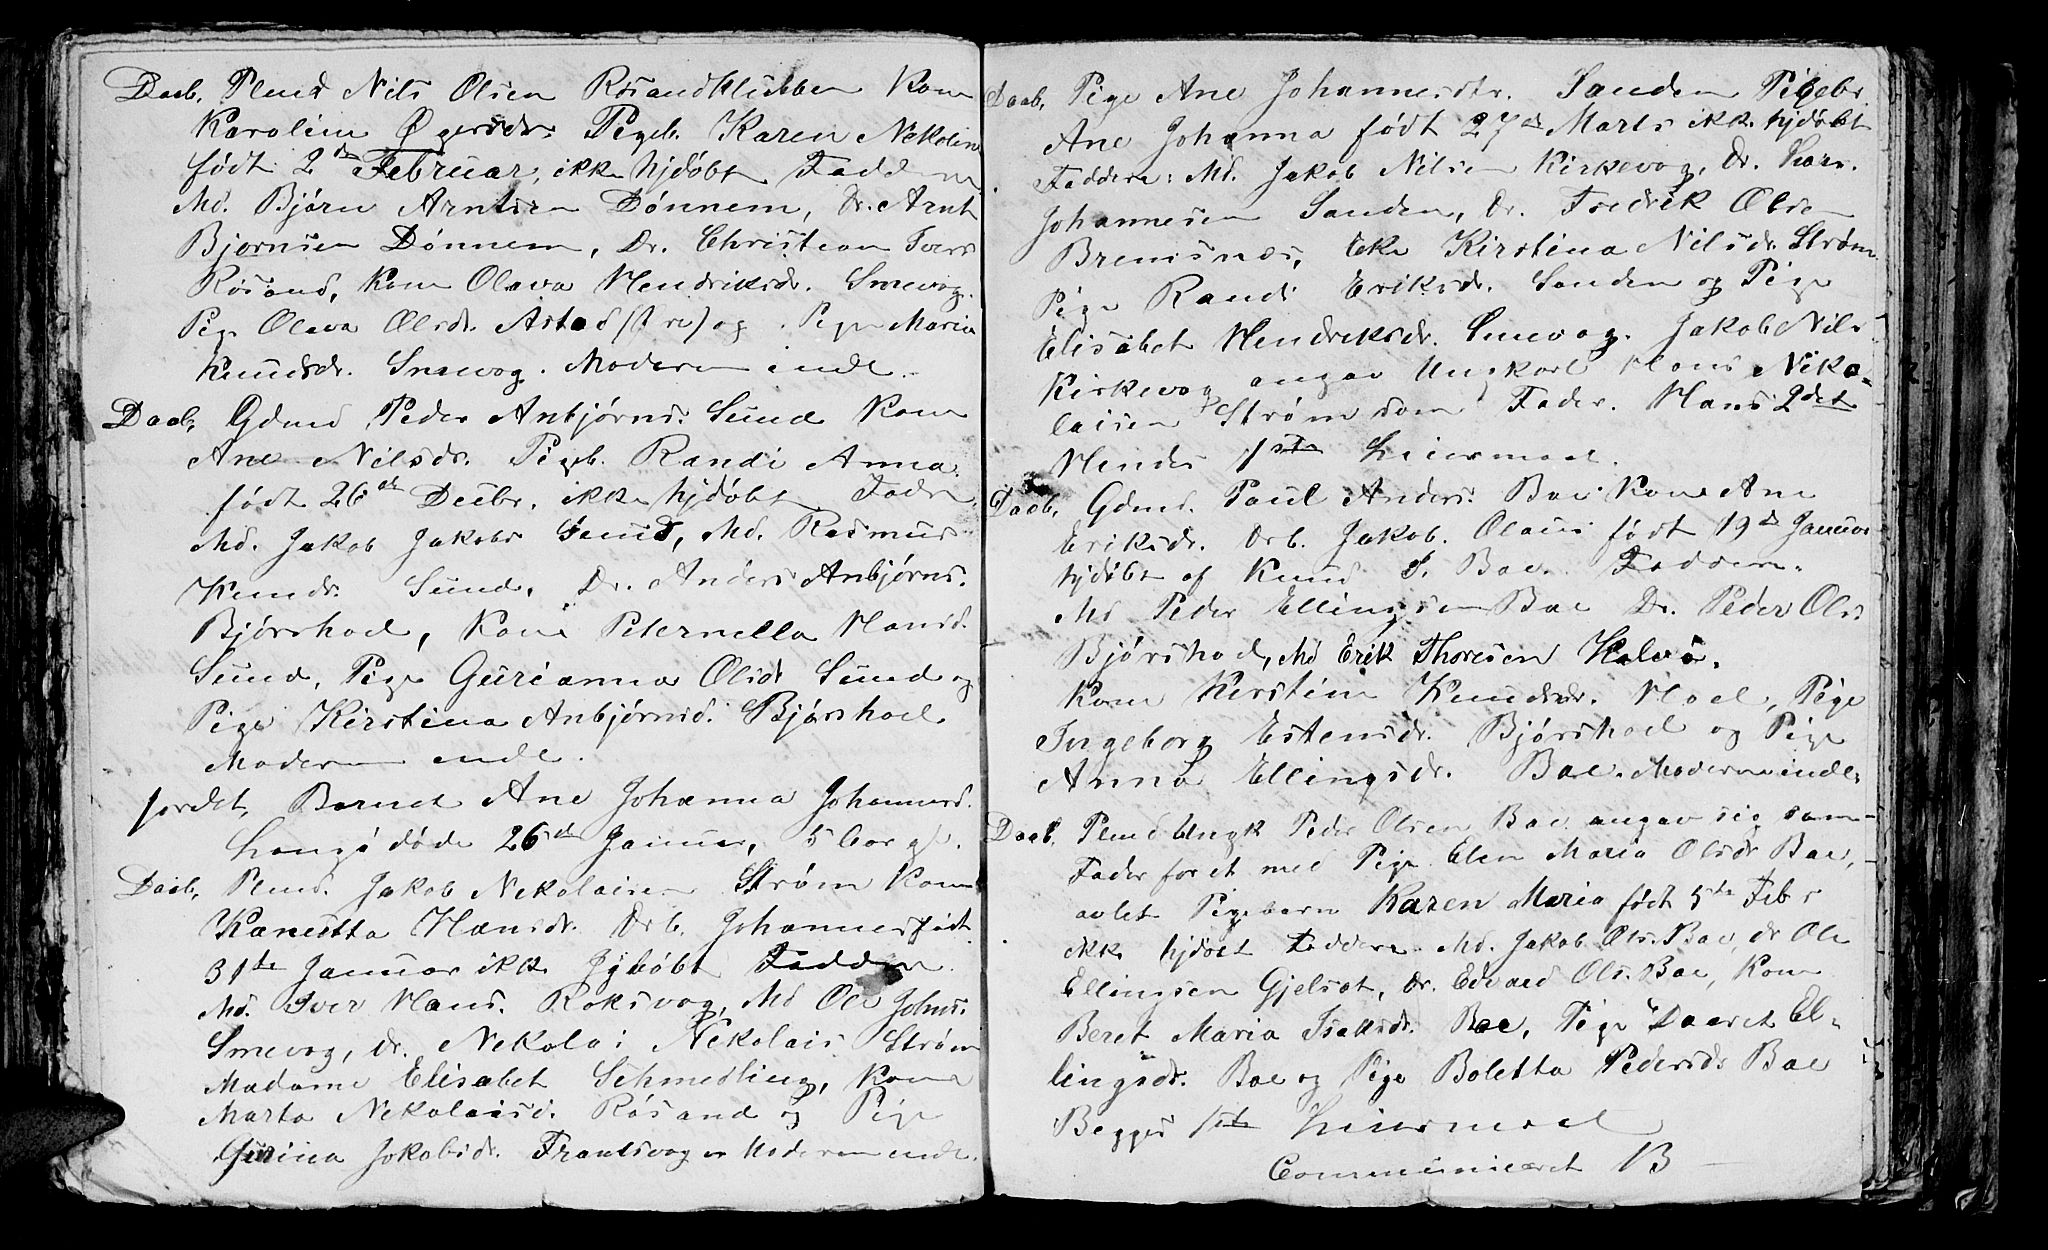 Daab, Plmd Nils Olsen Røsandklubben Kone
Karolin Øgersdr. Pigeb. Karen Nekolin
født 2de Februar, ikke hjdøbt Faddern
Md. Bjørn Arntsen Dønnem, Dr. Arnt
Bjørnsen Dønnem, Dr. Christian Ivers
Røsand, Kone Olava Hendriksdr. Smevog.
Pige Olava Olsdr. Astad og Pige Maria
Knudsdr. Smevog. Moderen indl.
Daab, Gdmd Peder Anbjørns. Sund Kone
Ane Nilsdr. Pigeb. Randi Anna
født 26de Decbr. ikke hjdøbt Fadre
Md. Jakob Jakobs Sund, Md. Rasmus
Knuds. Sund, Dr. Anders Anbjørns.
Bjørshod, Kone Peternella Hansd.
Sund, Pige Gurianna Olsdr Sund og
Pige Kirstina Anbjørnsd. Bjørshod
Moderen indl.
jordet, Barnet Ane Johanna Johannesd.
Langø døde 26de Januar, 5 Aar gl.
Daab, Plmd. Jakob Nekolaisen Strøm Kone
Kanutta Hansdr. Drb. Johannes født
31te Januar ikke hjdøbt Faddern.
Md. Iver Hans. Roksvog, Md Ole Johns.
Smevog, Dr. Nekolai Nekolais Strøm
Madame Elisabet Schmedling, Kone
Marta Nekolaisd. Røsand og Pige
Gurina Jakobsdr. Frantsvog Moderen indl.
Daab, Pige Ane Johannesdr. Sanden Pigebr.
Ane Johanna født 27de Marts ikke hjdøbt
Faddere: Md. Jakob Nilsen Kirkevog, Dr. Lars
Johannesen Sanden, Dr. Fredrik Olsen
Bremsnæs, Eke Kirstina Nilsdr. Strøm
Pige Randi Eriksdr. Sanden og Pige
Elisabet Hendriksdr. Smevog. Jakob Nils
Kirkevog angav Ungkarl Hans Neko-
laisen Strøm som Fader. Hans 2det
Hendes 1ste Leiermaal.
Daab, Gdmd. Paul Anders. Bae Kone Ane
Eriksdr. Drb. Jakob Olaus født 19de Januar
hjdøbt af Knud P. Bae. Faddern.
Md Peder Ellingsen Bae Dr. Peder Ols.
Bjørshod, Md Erik Thoresen Kalvø.
Kone Kirstin Knudsdr. Hoel, Pige
Ingeborg Estensdr. Bjørshod og Pige
Anna Ellingsdr. Bae. Moderen indl.
Daab, Plmd Ungk Peder Olsen Bae angav sig som
Fader for et med Pige Elen Maria Olsdr Bae,
avlet Pigebarn Karen Maria født 5te Febr
ikke hjdøbt Faddere Md. Jakob Ols. Bae, Dr Ole
Ellingsen Gjelsøt, Dr. Edvard Ols. Bae, Kone
Beret Maria Isaksdr. Bae, Pige Daaret El-
lingsdr. Bae og Pige Boletta Pedersdr Bae
Begges 1ste Leiermaal
Communiceret 13